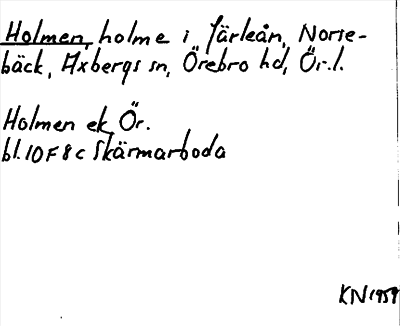 Holmen, holme i Järleån, Norre-
bäck, Axbergs sn, Örebro hd, Ör.l.
Holmen ek Ör.
bl. 10F 8c Skärmarboda
KN 1959